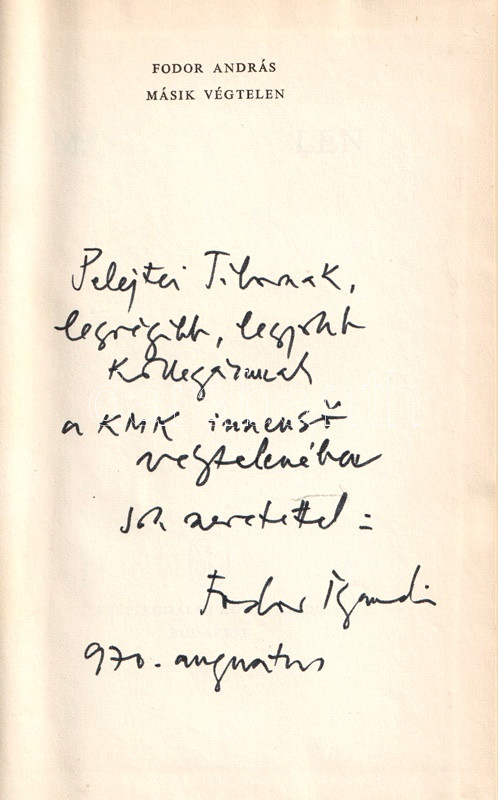 FODOR ANDRÁS
MÁSIK VÉGTELEN
Pelejtei Tibornak,
legrégibb, legjobb
kollegámnak
a KMK innenső
végtelenében
sok szeretettel:
Fodor Bandi
970. augusztus